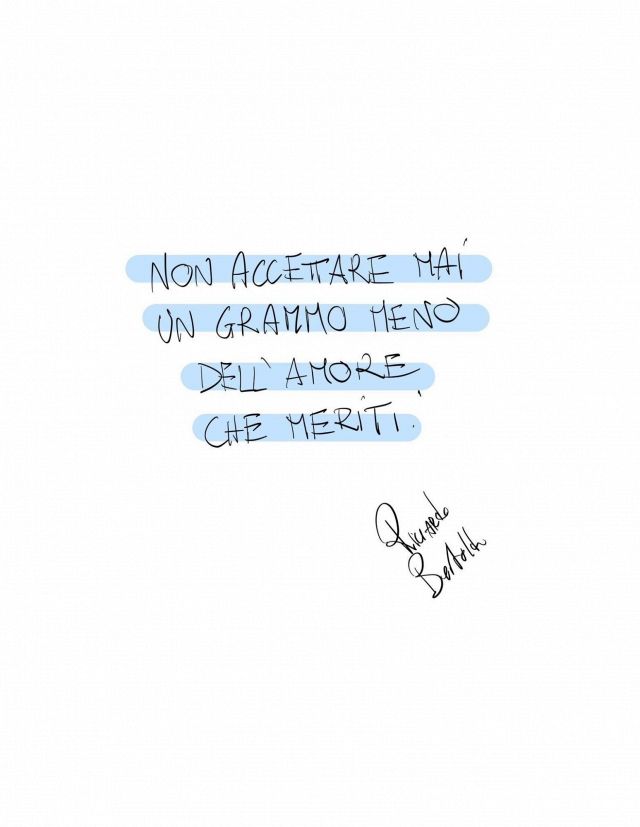 NON ACCETTARE MAI
UN GRAMMO MENO
DELL'AMORE
CHE MERITI.
Riccardo
Bertoldi